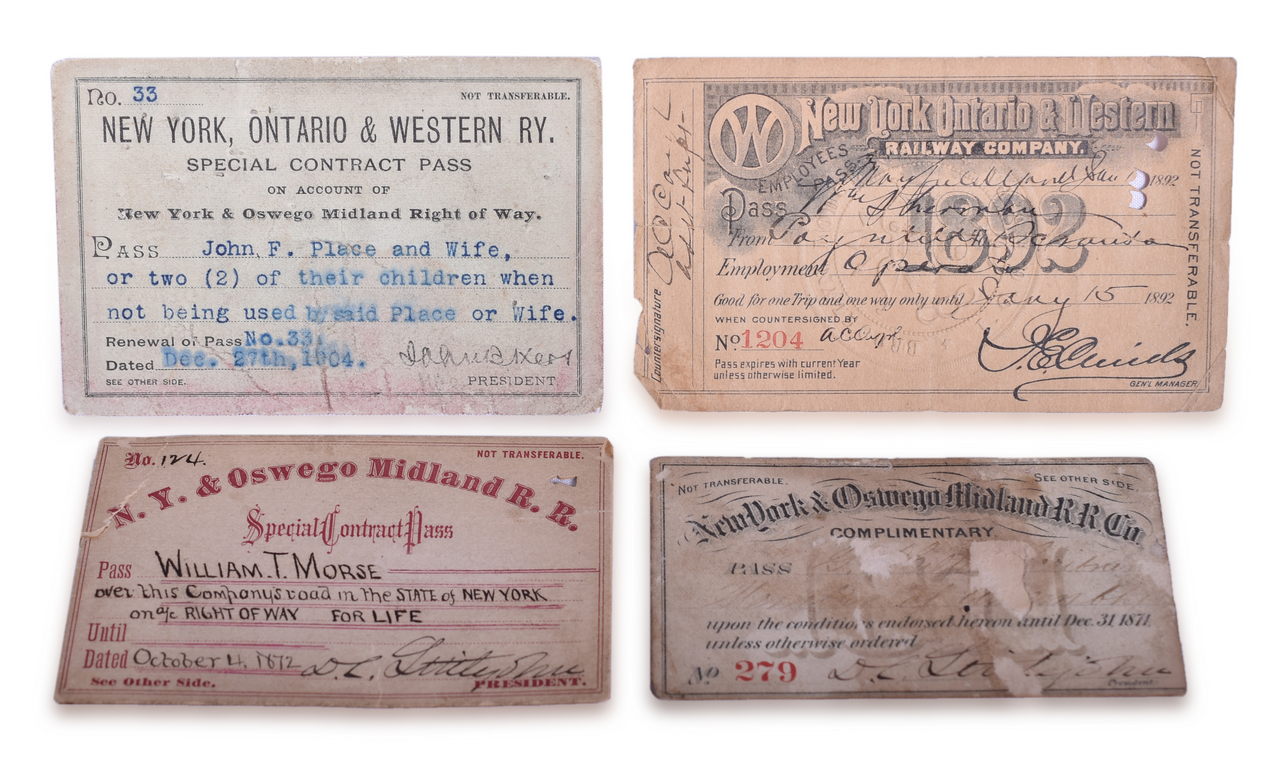 No. 33
NOT TRANSFERABLE.
NEW YORK, ONTARIO & WESTERN RY.
SPECIAL CONTRACT PASS
ON ACCOUNT OF
New York & Oswego Midland Right of Way.
PASS John F. Place and Wife,
or two (2) of their children when
not being used by said Place or Wife.
Renewal of Pass No.33.
Dated Dec. 27th, 1904.
SEE OTHER SIDE.
PRESIDENT
W
New York Ontario & Western
RAILWAY COMPANY.
EMPLOYEES PASS
1892
1892
Pass Wm Sherman
From
Employment
Good for one Trip and one way only until Jany 15 1892
WHEN COUNTERSIGNED BY
No 1204
Pass expires with current Year
unless otherwise limited.
GEN'L MANAGER
NOT TRANSFERABLE.
Countersignature
No. 124.
NOT TRANSFERABLE.
N. Y. & Oswego Midland R. R.
Special Contract Pass
Pass WILLIAM. T. MORSE
over this Company's road in the STATE of NEW YORK
on a/c RIGHT OF WAY FOR LIFE
Until
Dated October 4, 1872 D. C. Littlejohn
See Other Side.
PRESIDENT.
NOT TRANSFERABLE.
SEE OTHER SIDE.
New York & Oswego Midland R R Co.
COMPLIMENTARY
PASS
upon the conditions endorsed hereon until Dec. 31 1871
unless otherwise ordered
No 279 D. C. Littlejohn
President.